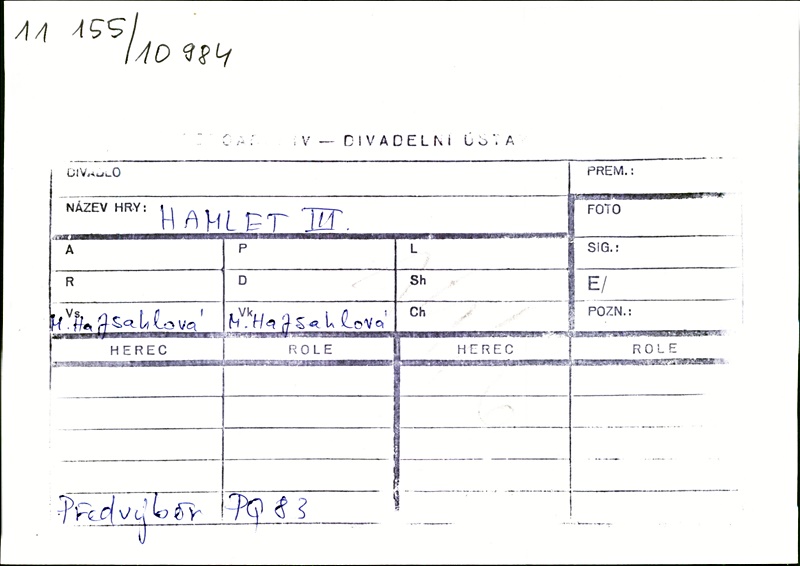 11 155/10 984
IV — DIVADELNÍ ÚSTA
DIVADLO PREM.:
NÁZEV HRY: HAMLET III. FOTO
A P L SIG.:
R D Sh E/
Vs M. Hajsahlová Vk M. Hajsahlová Ch POZN.:
HEREC ROLE HEREC ROLE
Předvýběr PQ 83